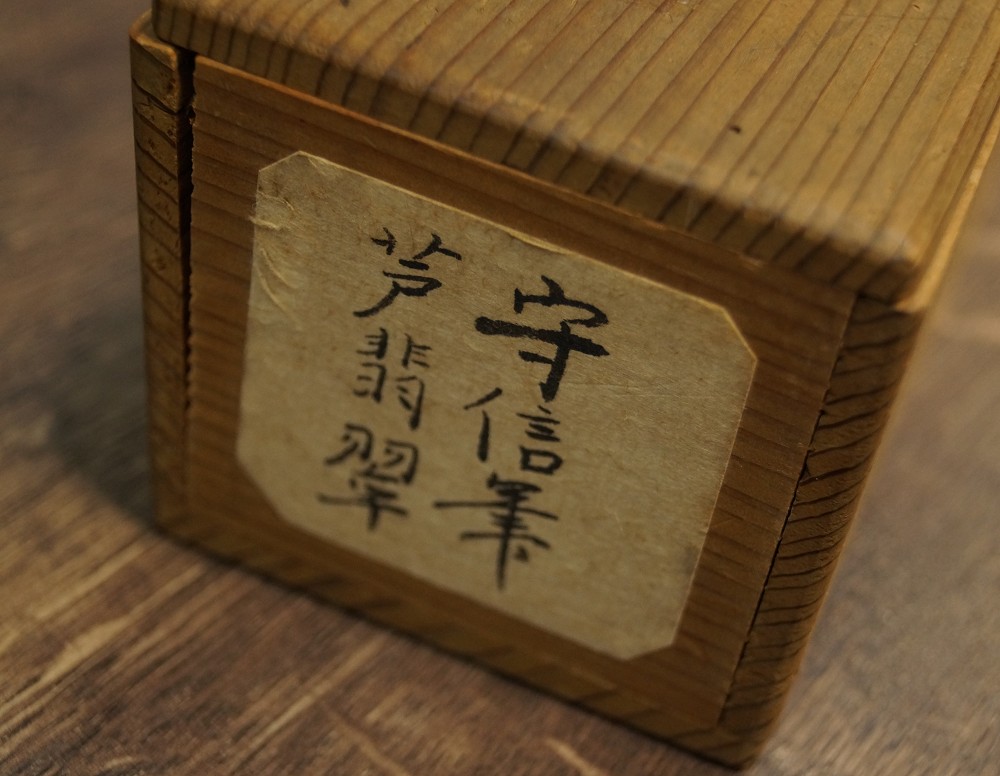 守信筆
芦翡翠